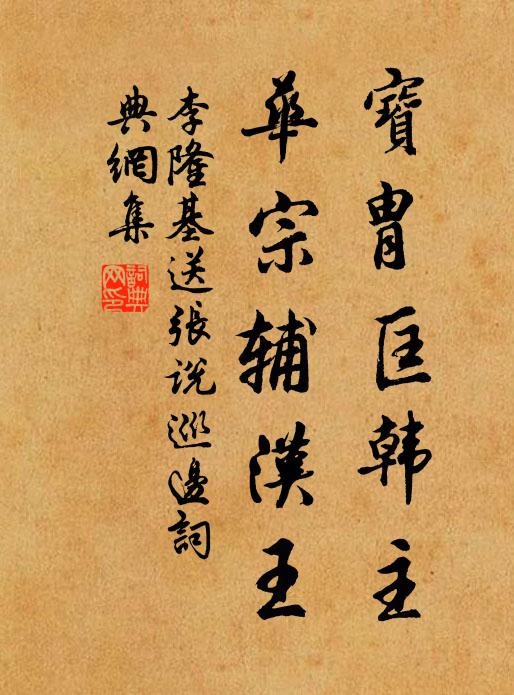 寶胄匡韓主
華宗辅漢王
李隆基送張说巡邊詞
典網集
詞典
网印